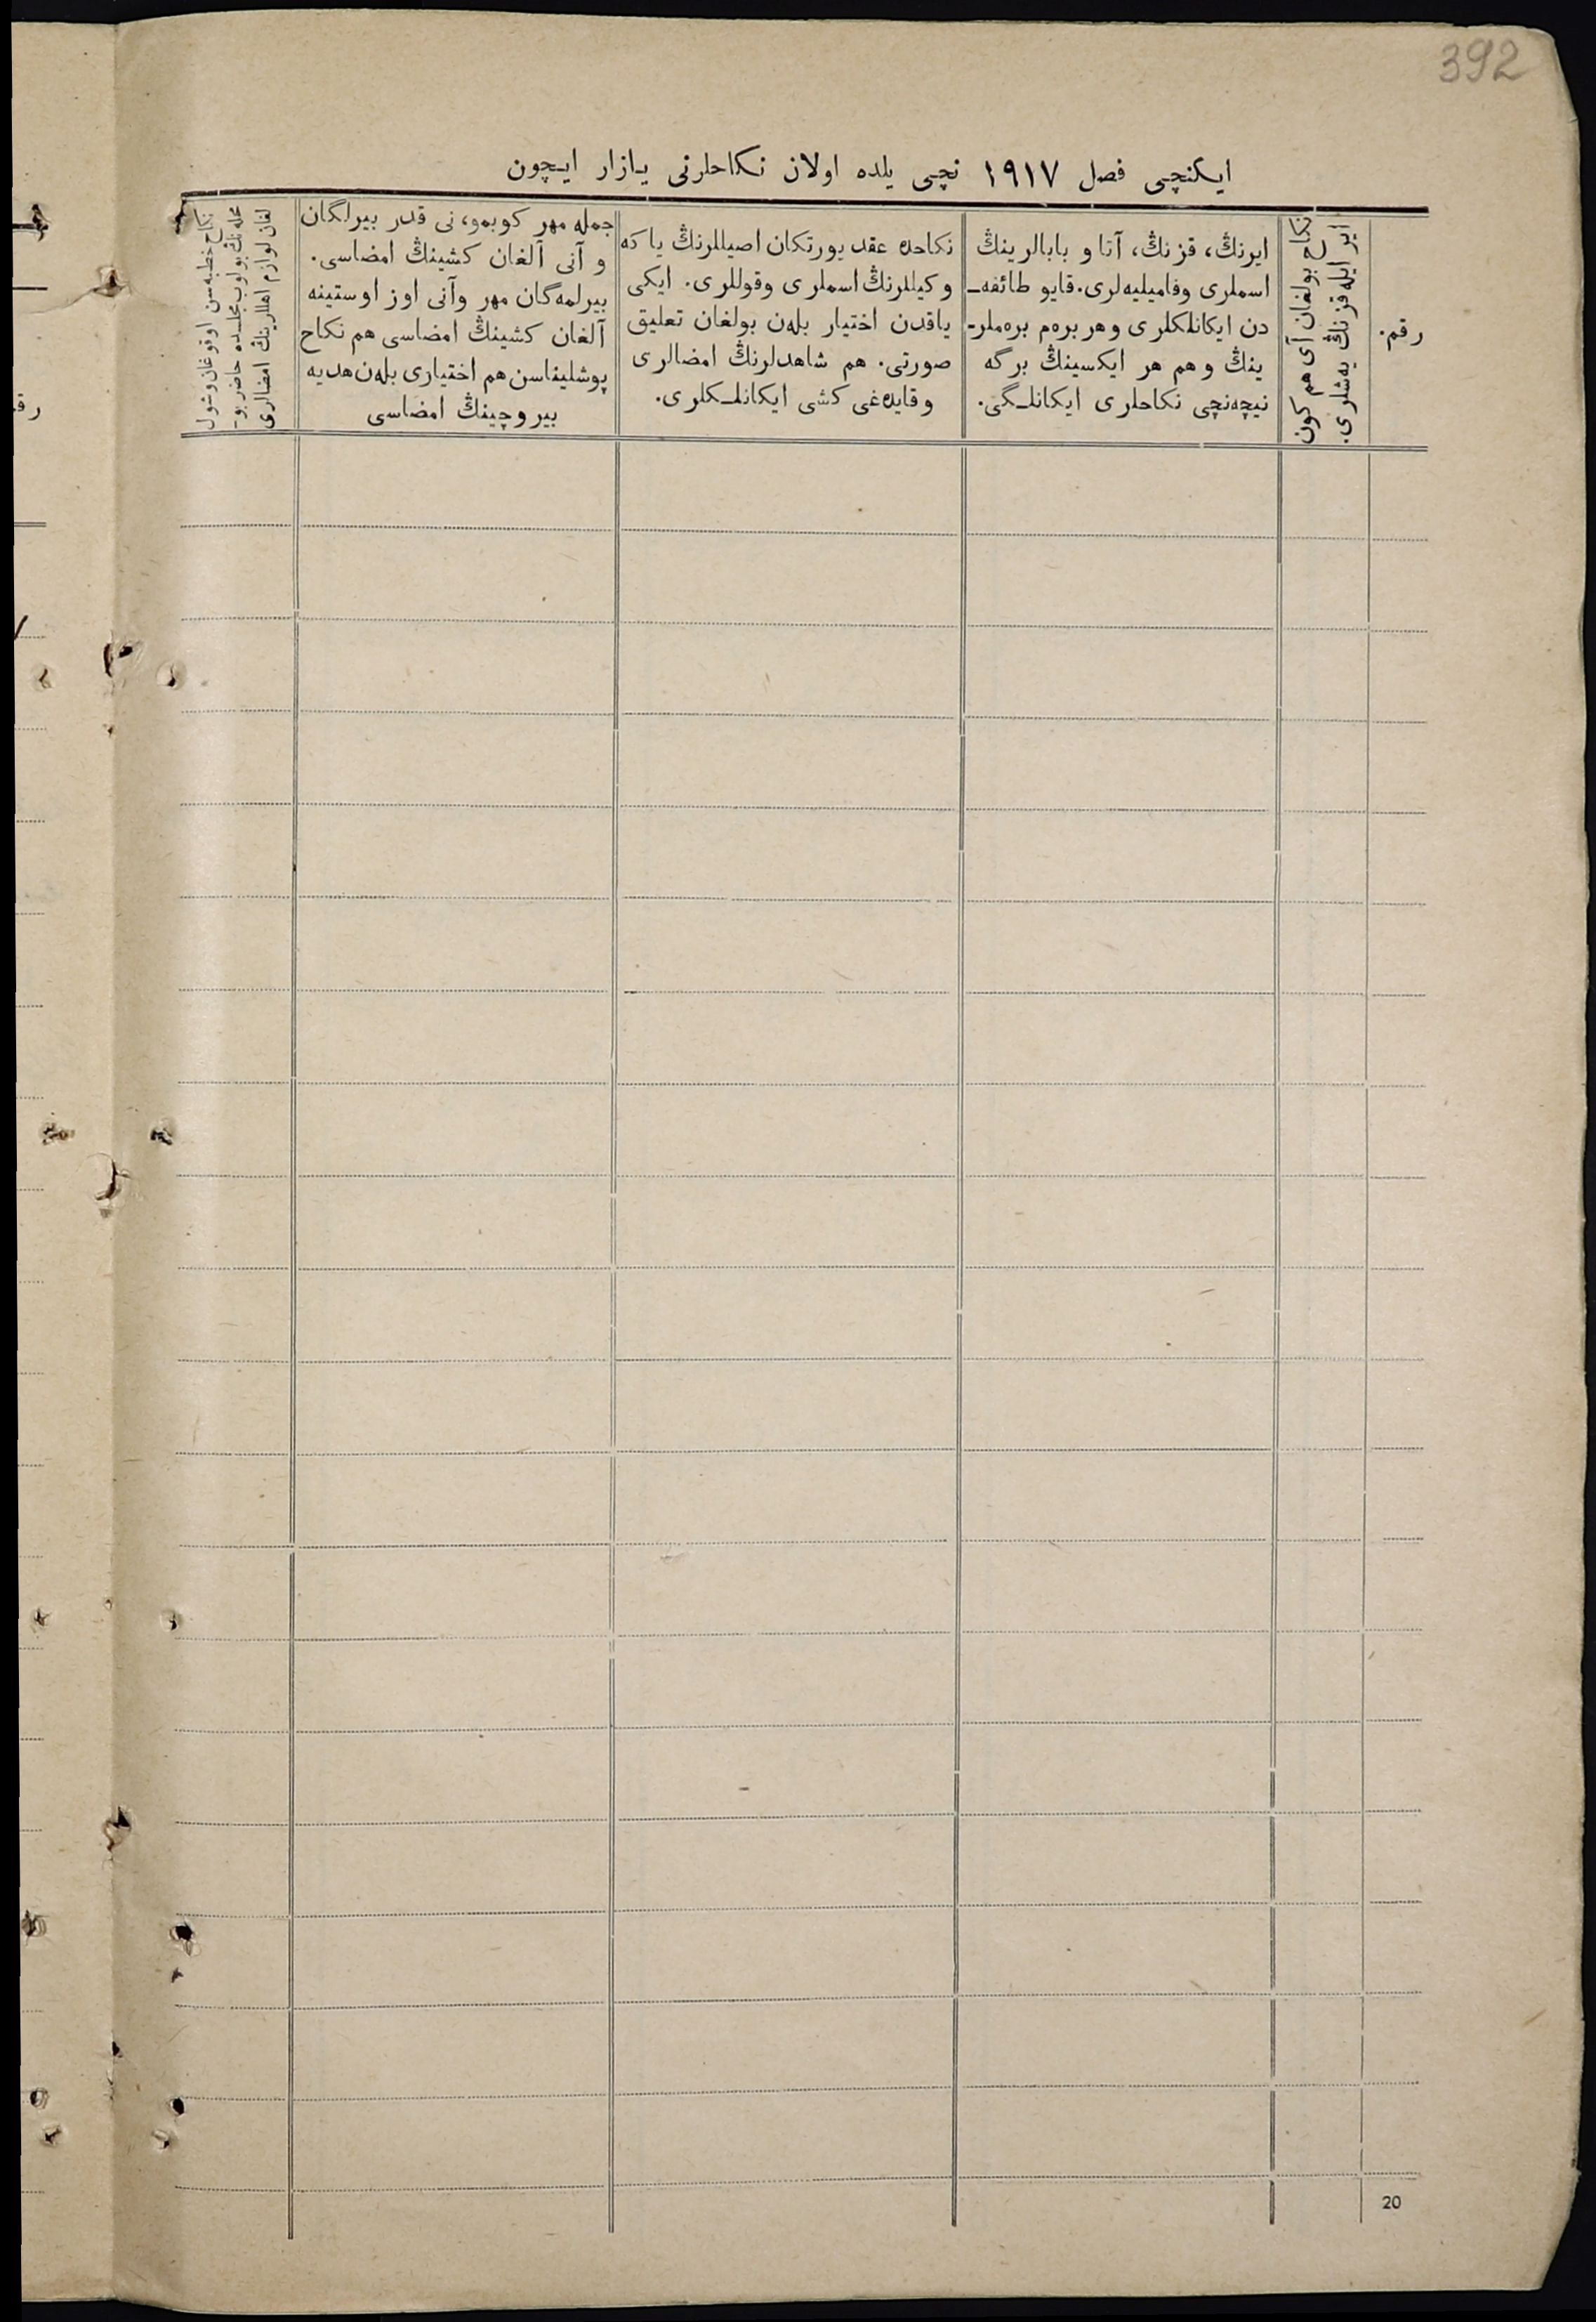 392
ایکنچی فصل ١٩١٧ نچی یلده اولان نکاحلرنی یازار ایچون
رقم.
نکاح بولغان آی هم کون
ایر ایله قزنڭ یەشلری.
ایرنڭ، قزنڭ، آتا و بابالرینڭ
اسملری وفامیلیەلری. قایو طائفه‌ـ
دن ایکانلکلری وهر برەم برەملر-
ینڭ وهم هر ایکسینڭ برگه
نیچەنچی نکاحلری ایکانلـگی.
نکاحده عقد یورتکان اصیللرنڭ یا که
وکیللرنڭ اسملری وقوللری. ایکی
یاقدن اختیار بلەن بولغان تعلیق
صورتی. هم شاهدلرنڭ امضالری
وقایدەغی کشی ایکانلـکلری.
جمله مهر کوبمو، نی قدر بیرلگان
و آنی آلغان کشینڭ امضاسی.
بیرلمەگان مهر وآنی اوز اوستینه
آلغان کشینڭ امضاسی هم نکاح
پوشلیناسن هم اختیاری بلەن هدیه
بیروچینڭ امضاسی
نکاح خطبەسن اوقوغان وشول
محلەنڭ بولوب مجلسده حاضر بو-
لغان لوازم اهللرینڭ امضالری
رق
20